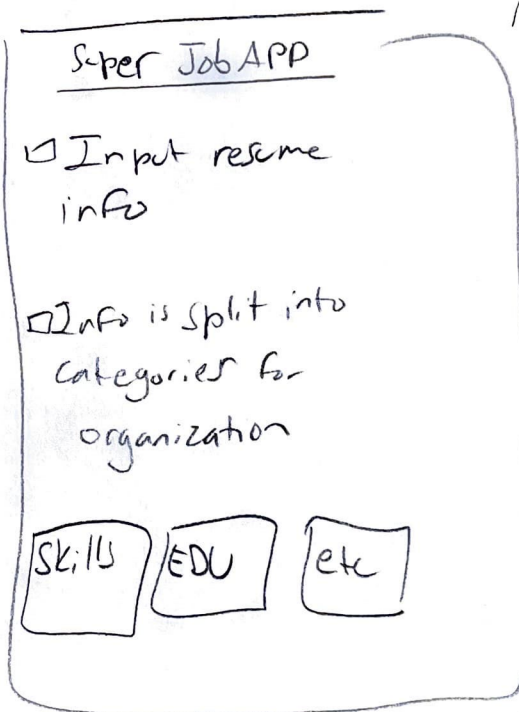 Super Job APP
Input resume
info
Info is split into
categories for
organization
Skills
EDU
etc